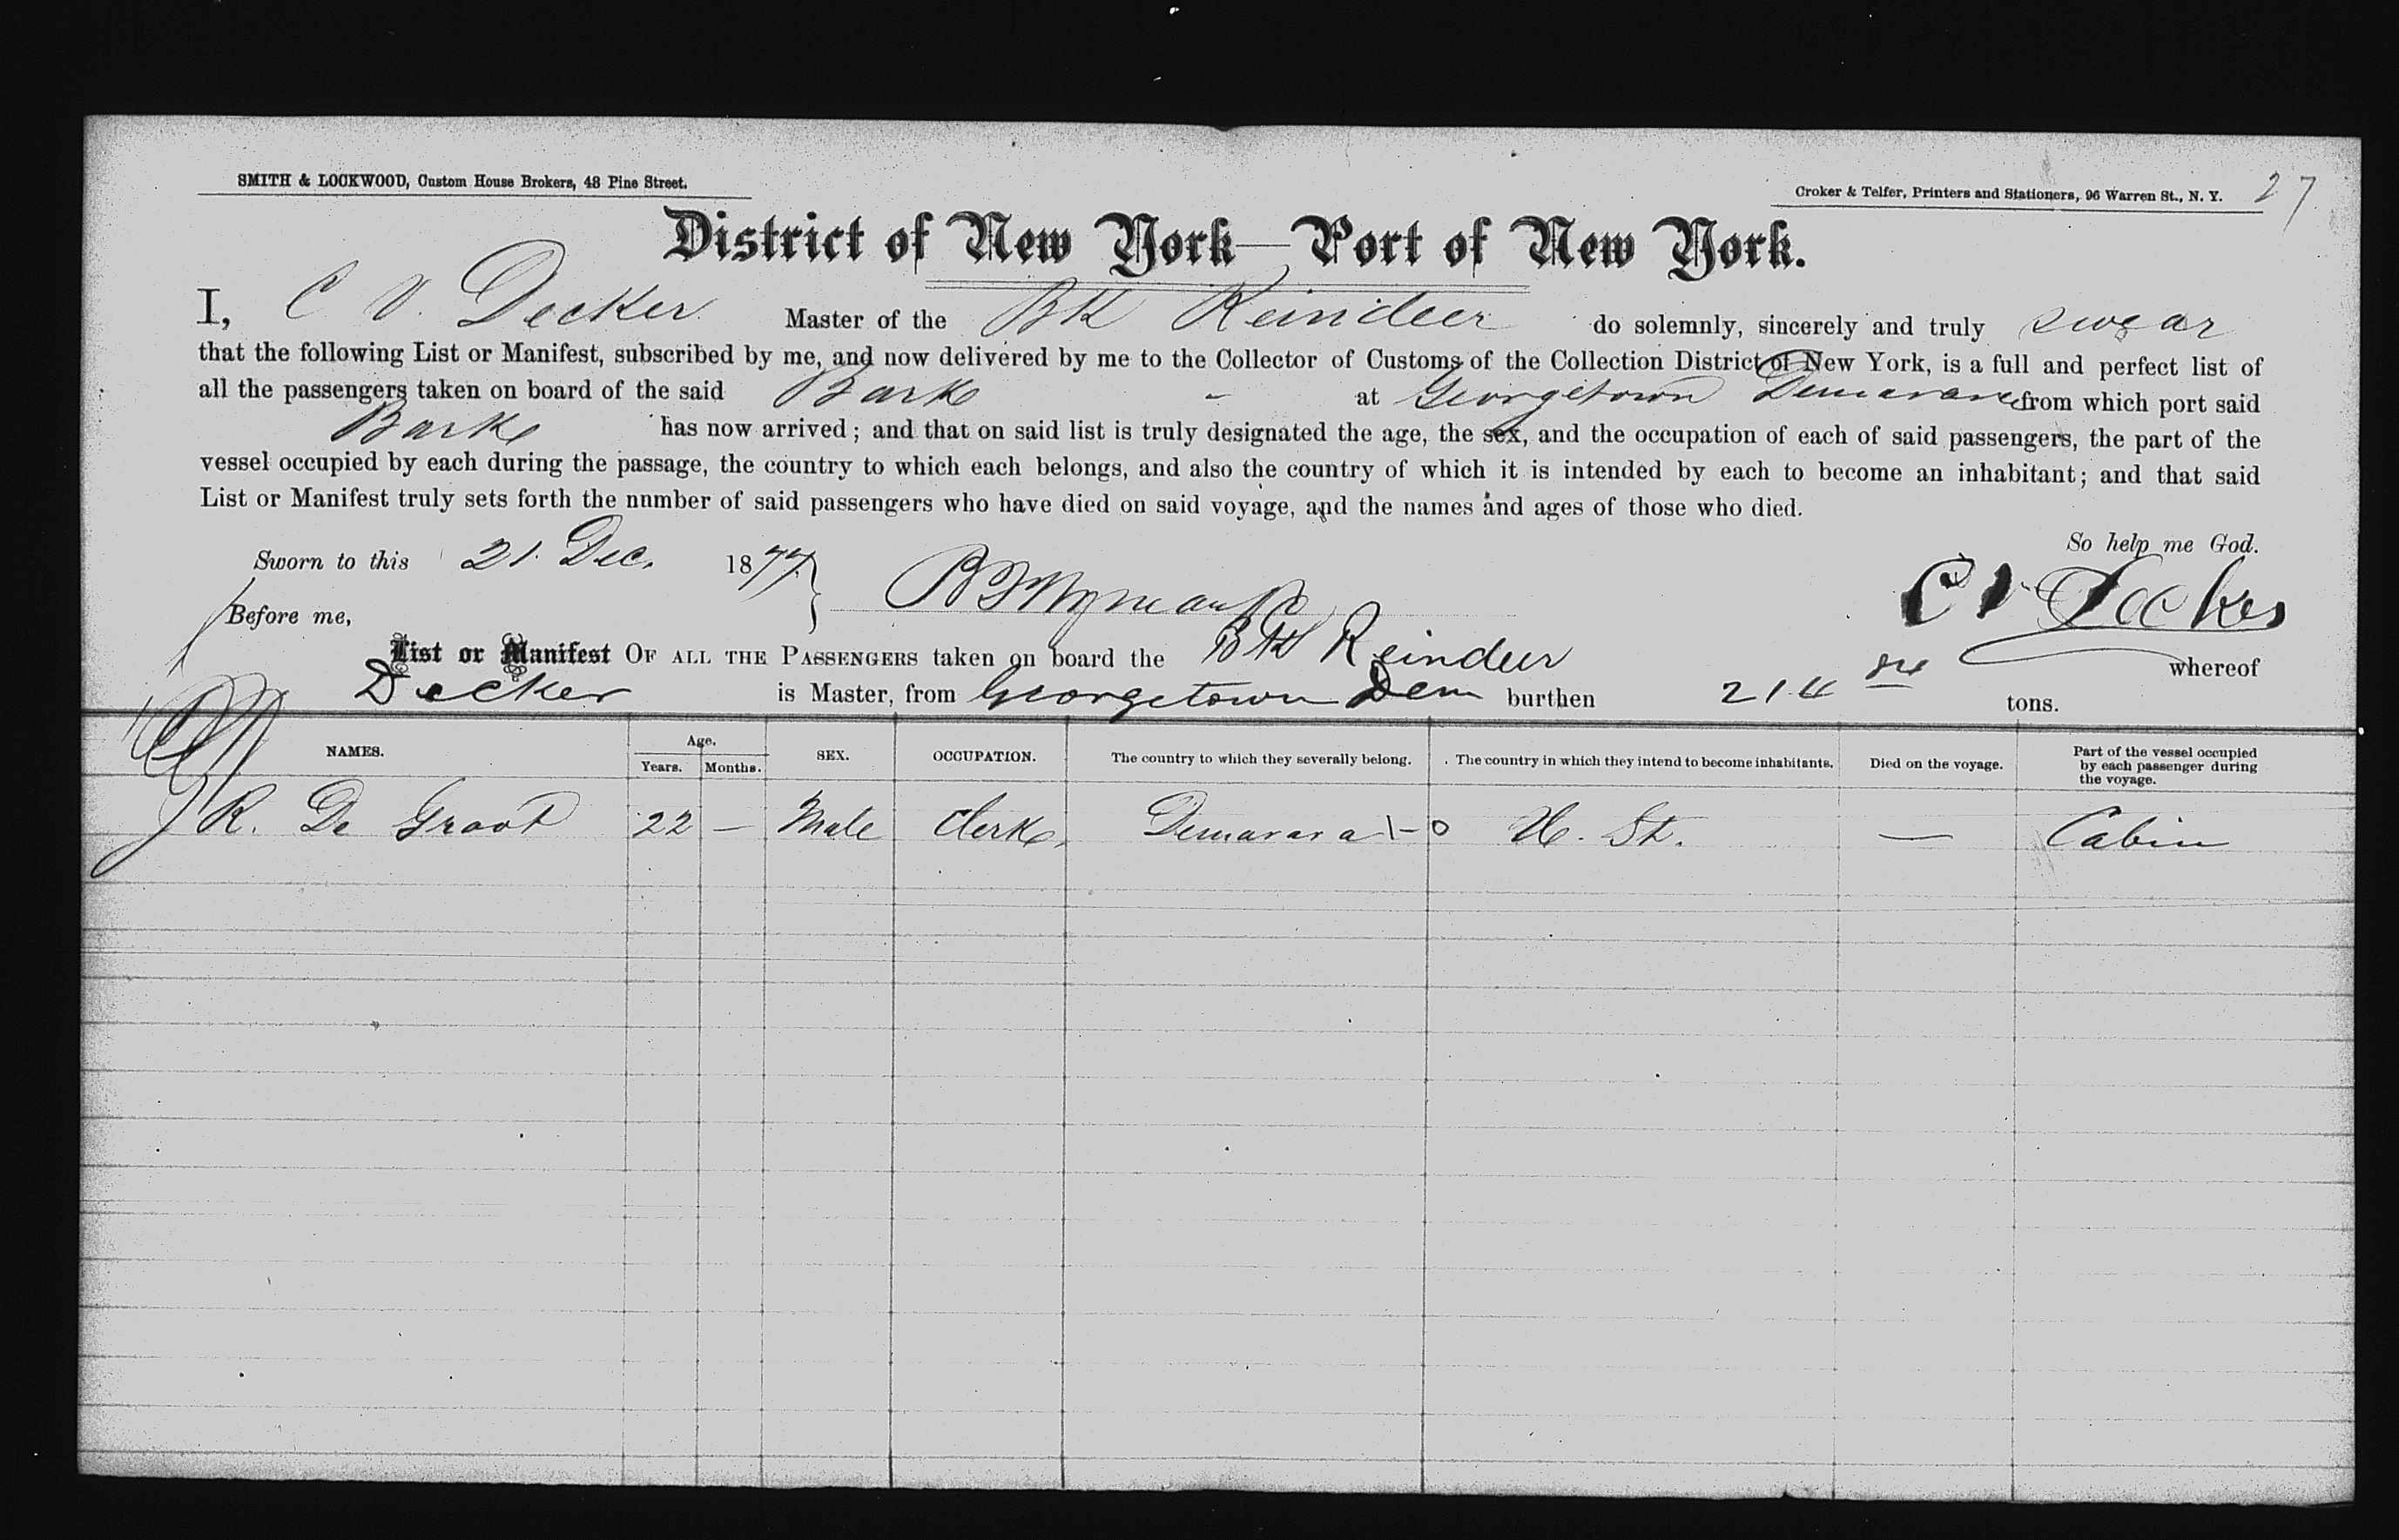 SMITH & LOCKWOOD, Custom House Brokers, 48 Pine Street.
Croker & Telfer, Printers and Stationers, 96 Warren St., N. Y. 27
District of New York—Port of New York.
I, C V. Decker Master of the Bk Reindeer do solemnly, sincerely and truly swear
that the following List or Manifest, subscribed by me, and now delivered by me to the Collector of Customs of the Collection District of New York, is a full and perfect list of
all the passengers taken on board of the said Bark - at Georgetown Demarara from which port said
Bark has now arrived; and that on said list is truly designated the age, the sex, and the occupation of each of said passengers, the part of the
vessel occupied by each during the passage, the country to which each belongs, and also the country of which it is intended by each to become an inhabitant; and that said
List or Manifest truly sets forth the nnmber of said passengers who have died on said voyage, and the names and ages of those who died.
So help me God.
Sworn to this 21. Dec. 1877.
Before me, C V Decker
List or Manifest OF ALL THE PASSENGERS taken on board the Bk Reindeer whereof
Decker is Master, from Georgetown Dem burthen 214 tons.
NAMES. Age. Years. Months. SEX. OCCUPATION. The country to which they severally belong. The country in which they intend to become inhabitants. Died on the voyage. Part of the vessel occupied by each passenger during the voyage.
J R. De Groot 22 — Male Clerk, Demarara \-o U. St. — Cabin